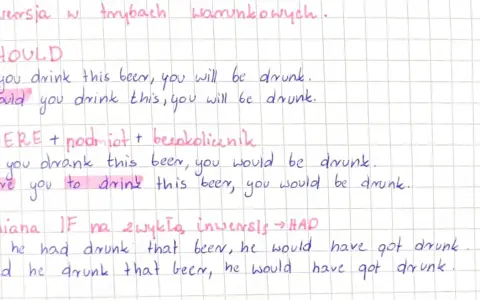 wersja w trybach warunkowych.
HOULD
you drink this beer, you will be drunk.
ould you drink this, you will be drunk.
ERE + podmiot + bezokolicznik
you drank this beer, you would be drunk.
re you to drink this beer, you would be drunk.
iana IF na zwykłą inwersję → HAD
he had drunk that beer, he would have got drunk.
d he drunk that beer, he would have got drunk.